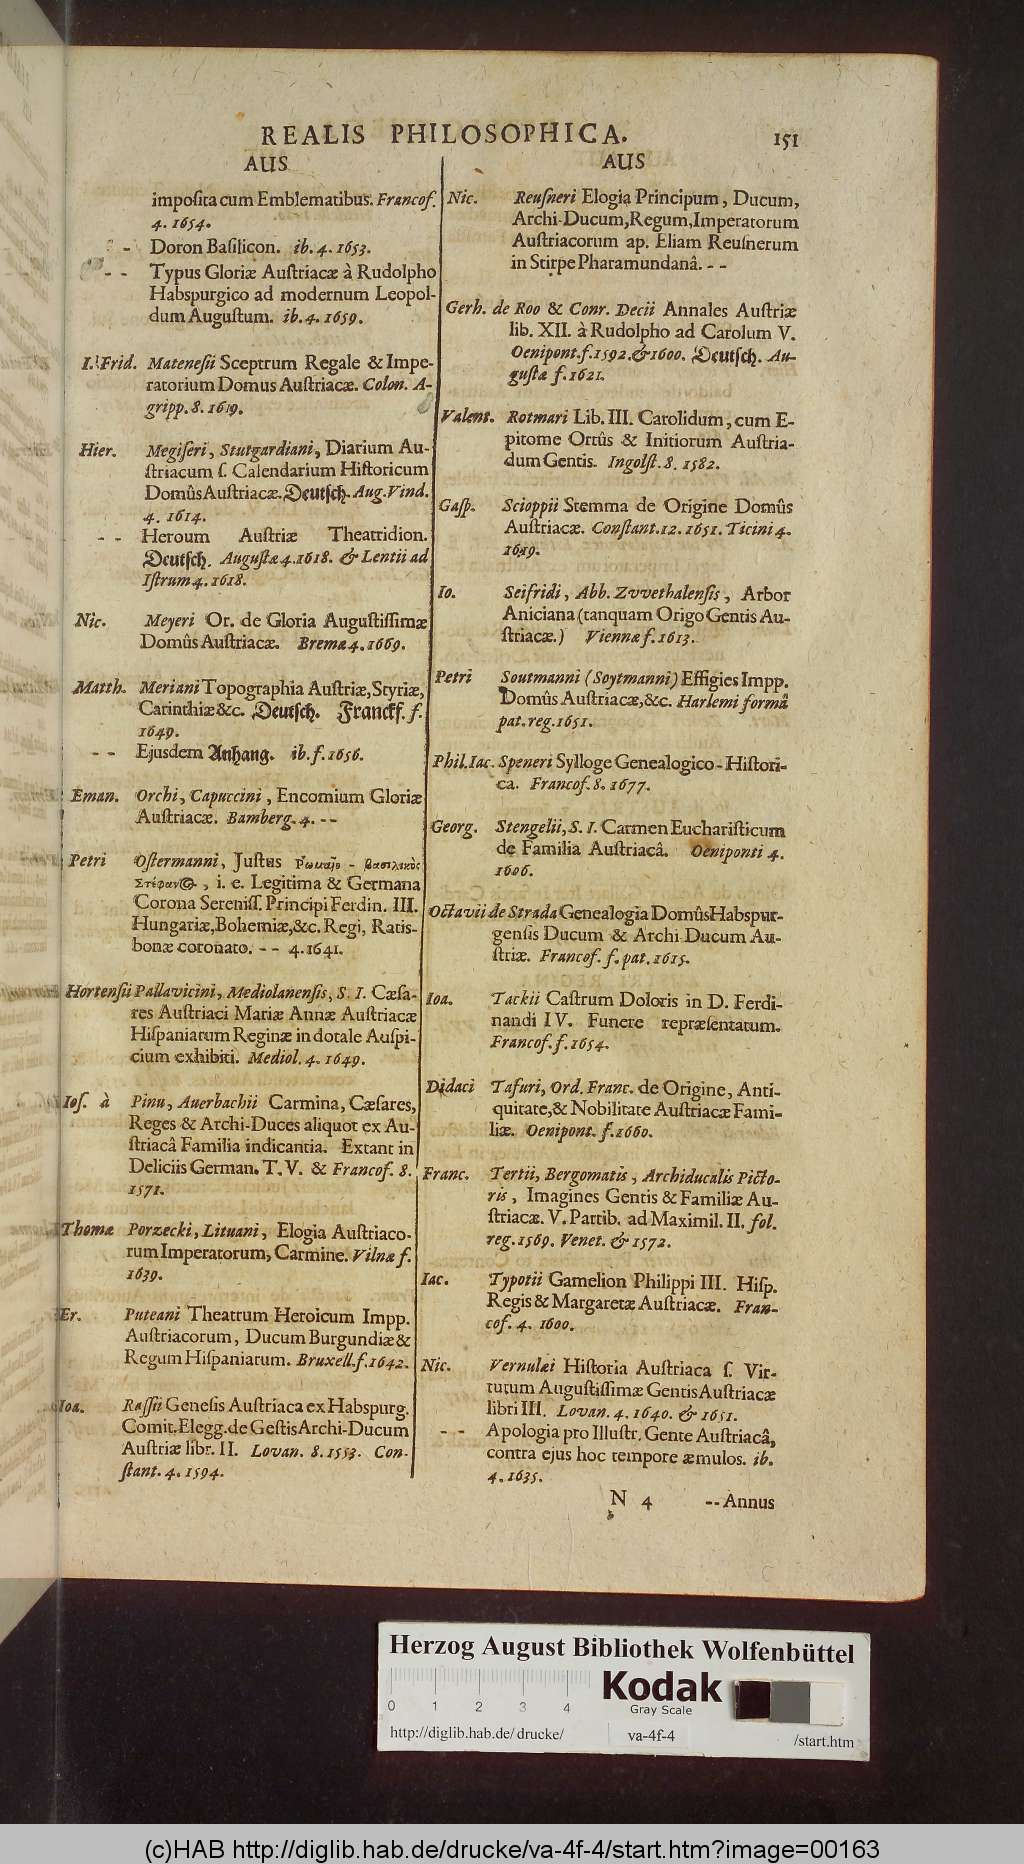 REALIS PHILOSOPHICA. 151
AUS
imposita cum Emblematibus. Francof.
4. 1654.
- Doron Basilicon. ib. 4. 1653.
- - Typus Gloriæ Austriacæ à Rudolpho
Habspurgico ad modernum Leopol-
dum Augustum. ib. 4. 1659.
I. Frid. Matenesii Sceptrum Regale & Impe-
ratorium Domus Austriacæ. Colon. A-
gripp. 8. 1619.
Hier. Megiseri, Stutgardiani, Diarium Au-
striacum s. Calendarium Historicum
Domûs Austriacæ. Deutsch. Aug. Vind.
4. 1614.
- - Heroum Austriæ Theatridion.
Deutsch. Augustæ 4. 1618. & Lentii ad
Istrum 4. 1618.
Nic. Meyeri Or. de Gloria Augustissimæ
Domûs Austriacæ. Bremæ 4. 1669.
Matth. Meriani Topographia Austriæ, Styriæ,
Carinthiæ &c. Deutsch. Franckf. f.
1649.
- - Ejusdem Anhang. ib. f. 1656.
Eman. Orchi, Capuccini, Encomium Gloriæ
Austriacæ. Bamberg. 4. - -
Petri Ostermanni, Justus Ῥωμαῖο - βασιλικὸς
Στέφανος, i. e. Legitima & Germana
Corona Sereniss. Principi Ferdin. III.
Hungariæ, Bohemiæ, &c. Regi, Ratis-
bonæ coronato. - - 4. 1641.
Hortensii Pallavicini, Mediolanensis, S. I. Cæsa-
res Austriaci Mariæ Annæ Austriacæ
Hispaniarum Reginæ in dotale Auspi-
cium exhibiti. Mediol. 4. 1649.
Ios. à Pinu, Auerbachii Carmina, Cæsares,
Reges & Archi-Duces aliquot ex Au-
striacâ Familia indicantia. Extant in
Deliciis German. T. V. & Francof. 8.
1571.
Thomæ Porzecki, Lituani, Elogia Austriaco-
rum Imperatorum, Carmine. Vilnæ f.
1639.
Er. Puteani Theatrum Heroicum Impp.
Austriacorum, Ducum Burgundiæ &
Regum Hispaniarum. Bruxell. f. 1642.
Ioa. Rassii Genesis Austriaca ex Habspurg.
Comit. Elegg. de Gestis Archi-Ducum
Austriæ libr. II. Lovan. 8. 1553. Con-
stant. 4. 1594.
AUS
Nic. Reusneri Elogia Principum, Ducum,
Archi-Ducum, Regum, Imperatorum
Austriacorum ap. Eliam Reusnerum
in Stirpe Pharamundanâ. - -
Gerh. de Roo & Conr. Decii Annales Austriæ
lib. XII. à Rudolpho ad Carolum V.
Oenipont. f. 1592. & 1600. Deutsch. Au-
gustæ f. 1621.
Valent. Rotmari Lib. III. Carolidum, cum E-
pitome Ortûs & Initiorum Austria-
dum Gentis. Ingolst. 8. 1582.
Gasp. Scioppii Stemma de Origine Domûs
Austriacæ. Constant. 12. 1651. Ticini 4.
1619.
Io. Seifridi, Abb. Zvvethalensis, Arbor
Aniciana (tanquam Origo Gentis Au-
striacæ.) Viennæ f. 1613.
Petri Soutmanni (Soytmanni) Effigies Impp.
Domûs Austriacæ, &c. Harlemi formâ
pat. reg. 1651.
Phil. Iac. Speneri Sylloge Genealogico-Histori-
ca. Francof. 8. 1677.
Georg. Stengelii, S. I. Carmen Eucharisticum
de Familia Austriacâ. Oeniponti 4.
1606.
Octavii de Strada Genealogia Domûs Habspur-
gensis Ducum & Archi Ducum Au-
striæ. Francof. f. pat. 1615.
Ioa. Tackii Castrum Doloris in D. Ferdi-
nandi IV. Funere repræsentatum.
Francof. f. 1654.
Didaci Tafuri, Ord. Franc. de Origine, Anti-
quitate, & Nobilitate Austriacæ Fami-
liæ. Oenipont. f. 1660.
Franc. Tertii, Bergomatis, Archiducalis Picto-
ris, Imagines Gentis & Familiæ Au-
striacæ. V. Partib. ad Maximil. II. fol.
reg. 1569. Venet. & 1572.
Iac. Typotii Gamelion Philippi III. Hisp.
Regis & Margaretæ Austriacæ. Fran-
cof. 4. 1600.
Nic. Vernulæi Historia Austriaca s. Vir-
tutum Augustissimæ Gentis Austriacæ
libri III. Lovan. 4. 1640. & 1651.
- - Apologia pro Illustr. Gente Austriacâ,
contra ejus hoc tempore æmulos. ib.
4. 1635.
N 4 -- Annus
Herzog August Bibliothek Wolfenbüttel
0 1 2 3 4
Kodak
Gray Scale
http://diglib.hab.de/drucke/ va-4f-4 /start.htm
(c)HAB http://diglib.hab.de/drucke/va-4f-4/start.htm?image=00163